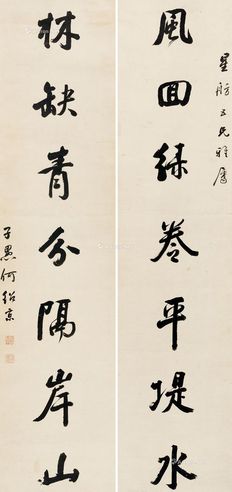 星舫五兄雅屬
風回綠卷平堤水
林缺青分隔岸山
子愚何紹京